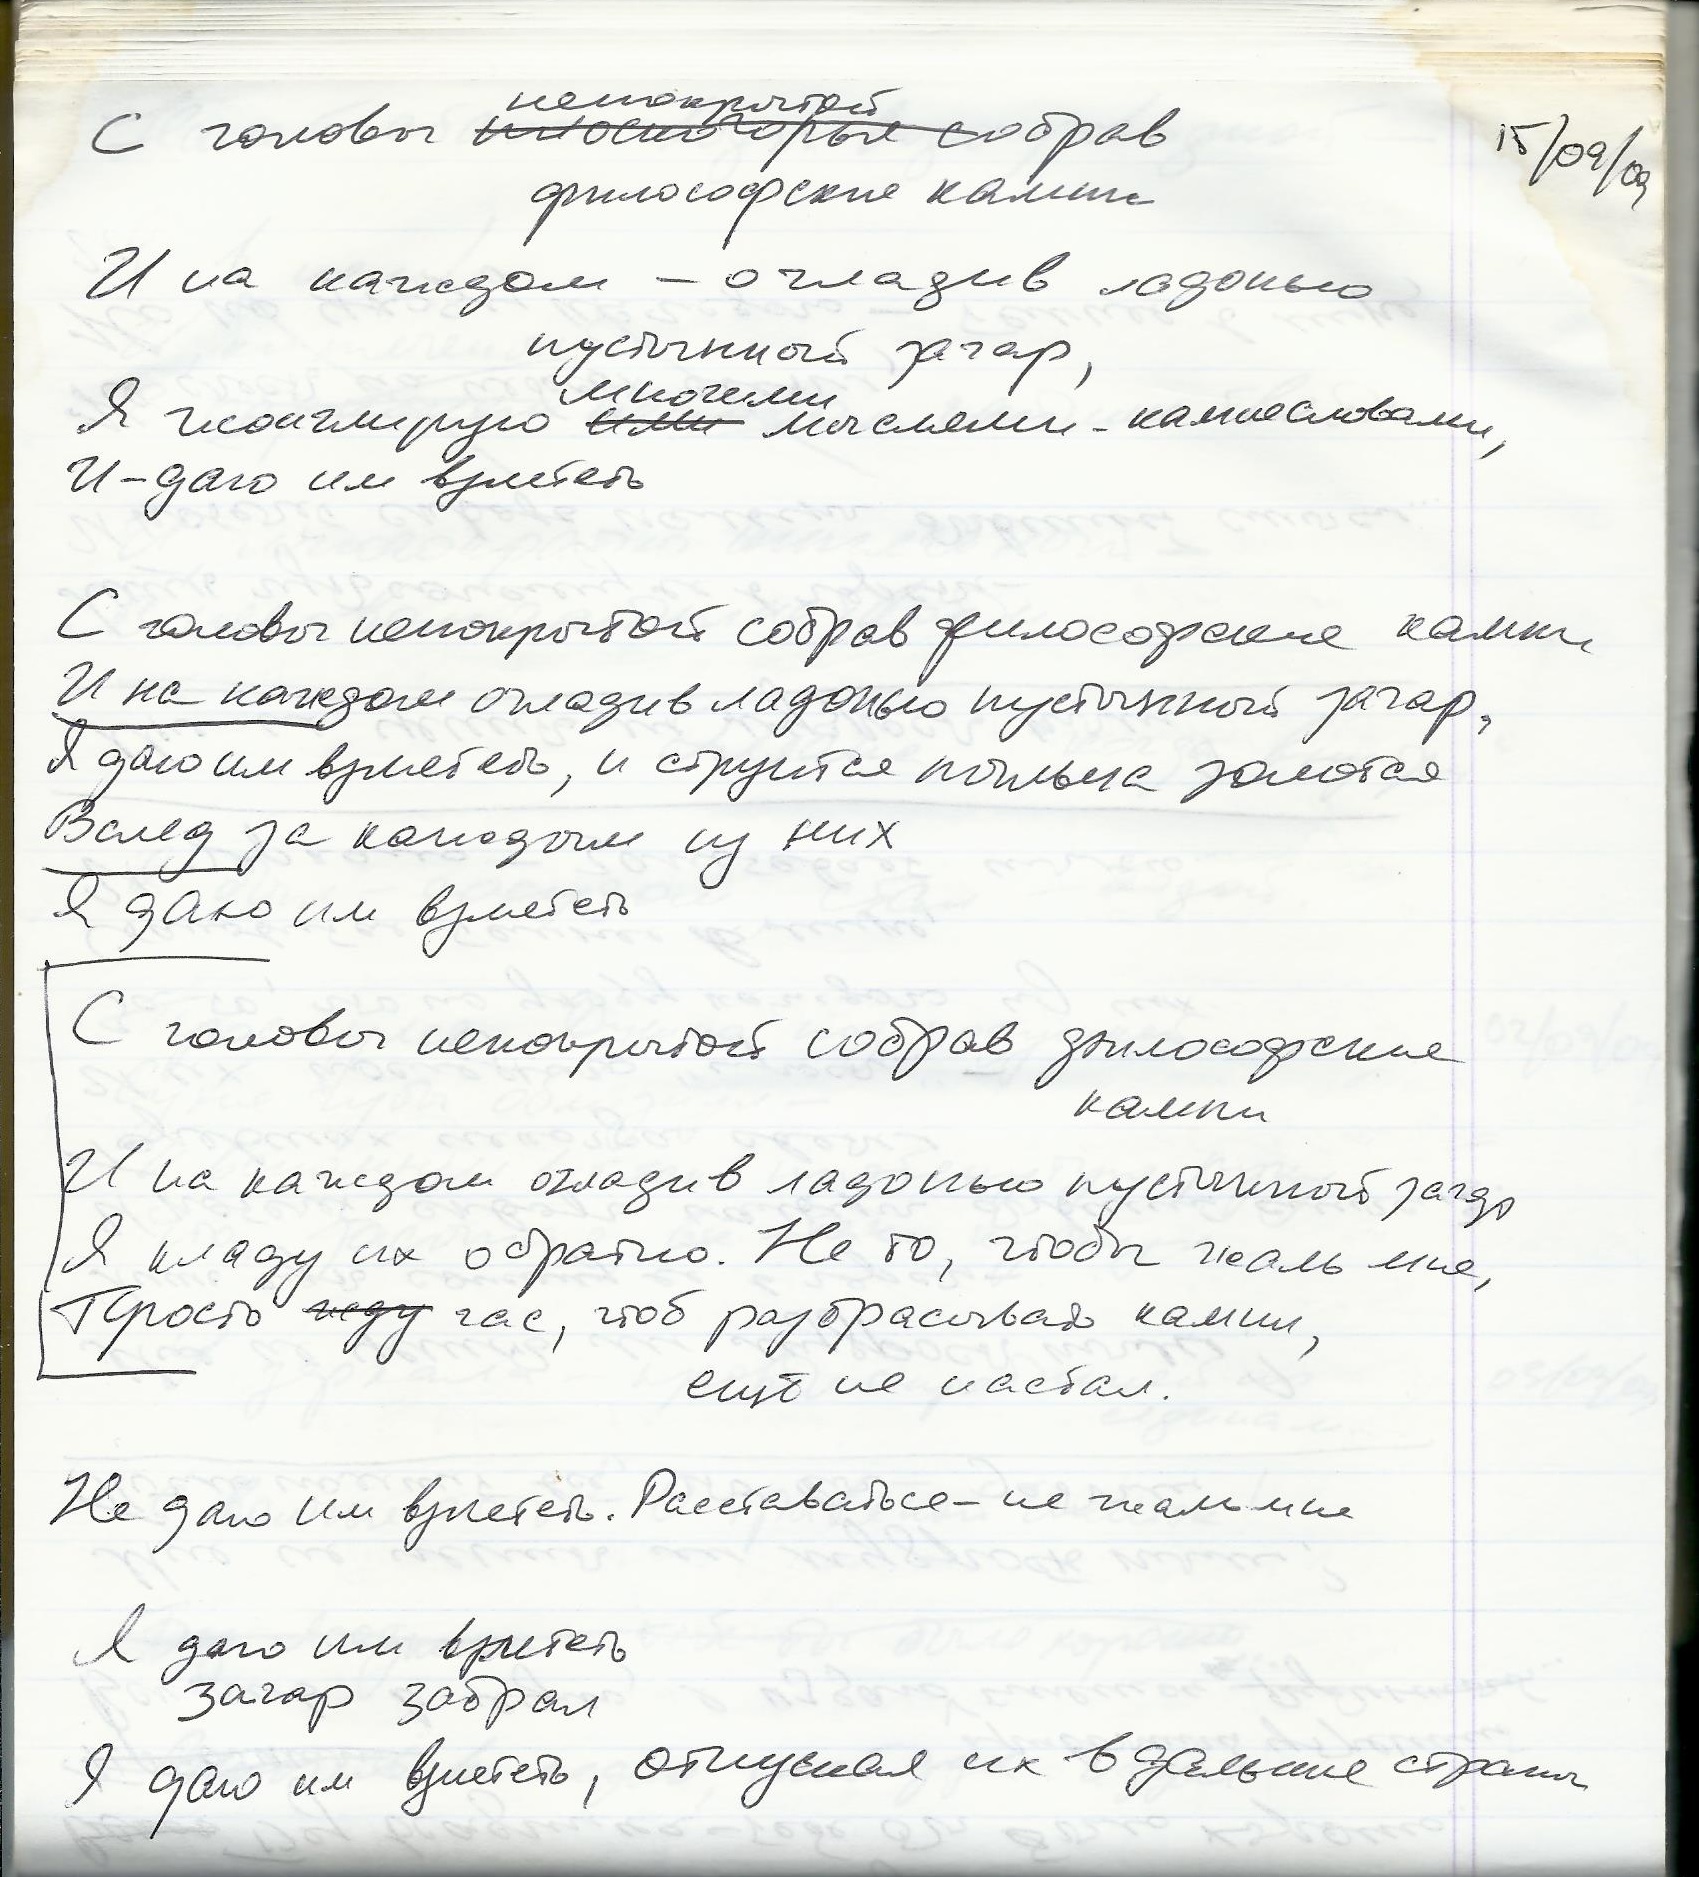 непокрытой
С головы плоскогорья собрав
15/09/09
философские камни
И на каждом – огладив ладонью
пустынный загар,
многими
Я жонглирую ими мыслями-камнесловами,
И – даю им взлететь
С головы непокрытой собрав философские камни
И на каждом огладив ладонью пустынный загар,
Я даю им взлететь, и струится пыльца золотая
Вслед за каждым из них
Я даю им взлететь
С головы непокрытой собрав философские
камни
И на каждом огладив ладонью пустынный загар
Я кладу их обратно. Не то, чтобы жаль мне,
Просто жду час, чтоб разбрасывать камни,
ещё не настал.
Не даю им взлететь. Расставаться – не жаль мне
Я даю им взлететь
загар забрал
Я даю им взлететь, отпуская их в дальние страны